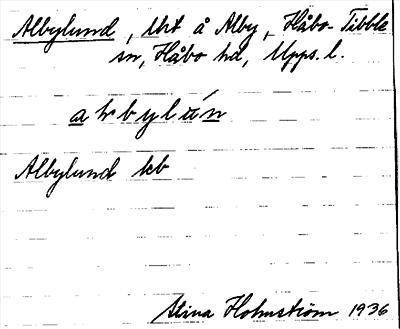 Albylund, Uht å Alby, Håbo-Tibble
sn, Håbo hd, Upps. l.
Albylund kb
Stina Holmström 1936